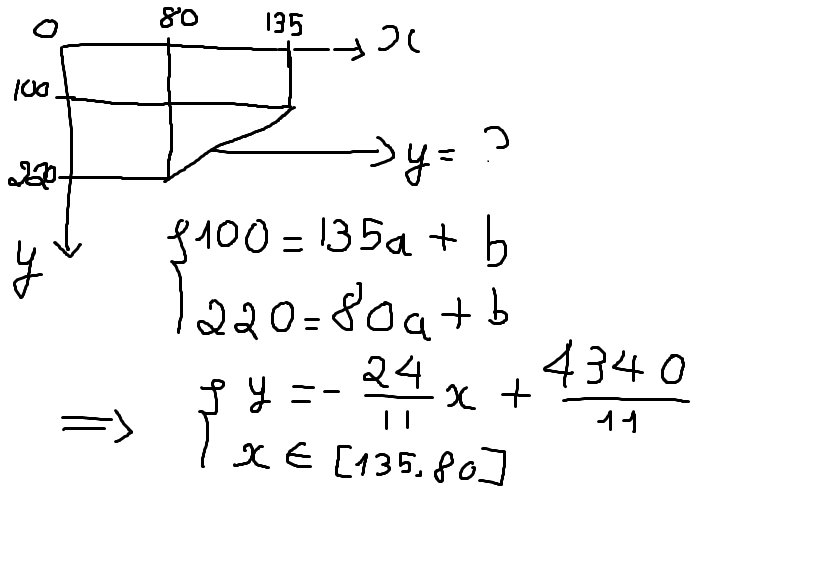 0 80 135 x
100
y = ?
220
y
{ 100 = 135a + b
220 = 80a + b
⇒ { y = - 24/11 x + 4340/11
x ∈ [135. 80]